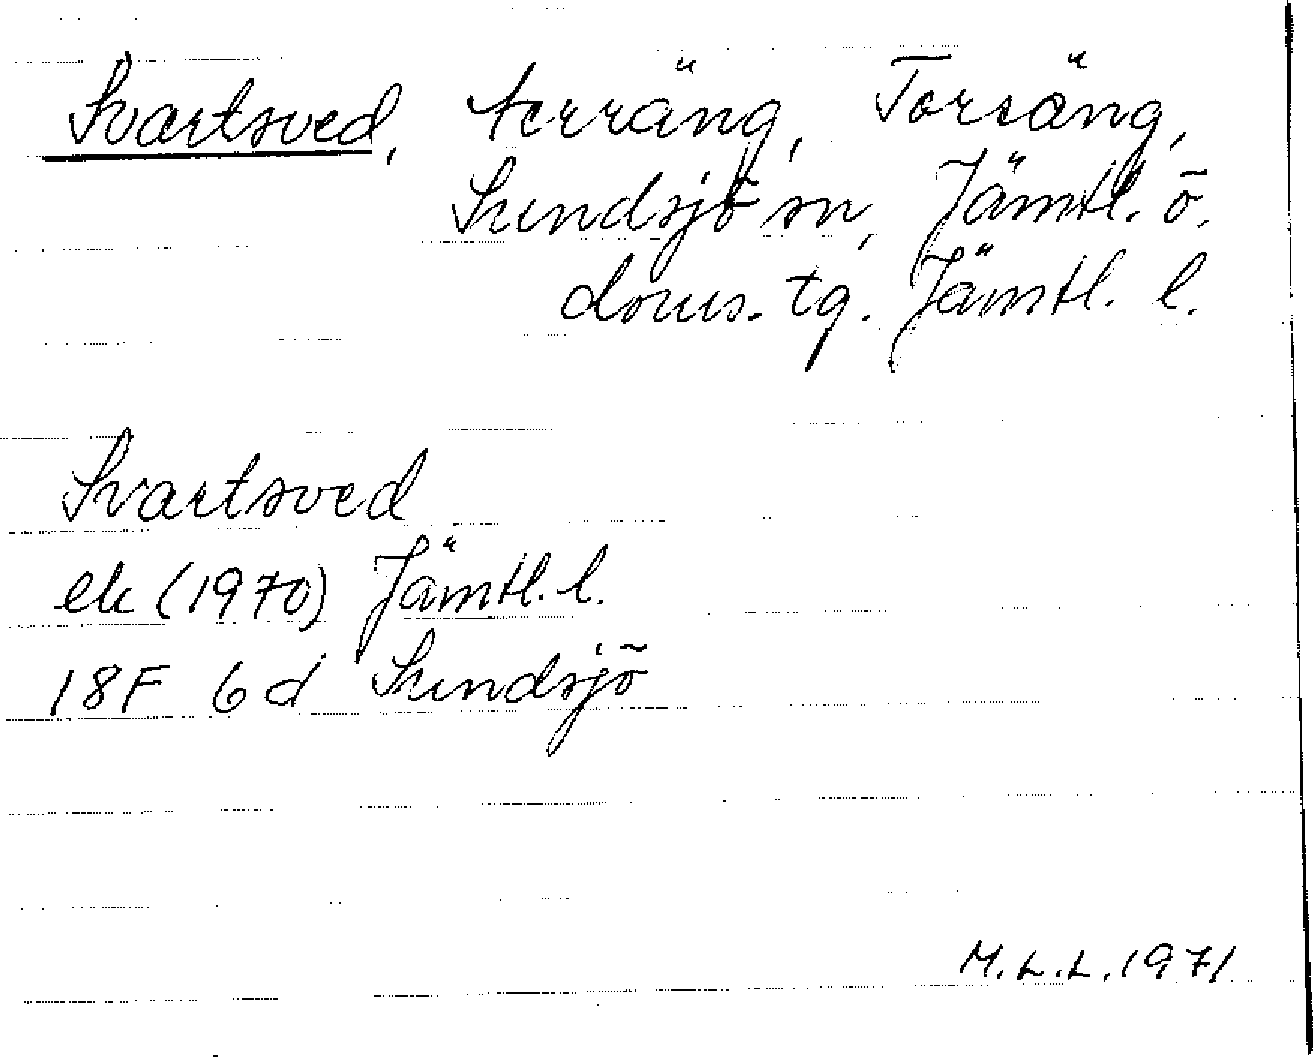 Svartsved, terräng, Torsäng,
Sundsjö sn, Jämtl. ö.
doms. tg. Jämtl. l.
Svartsved
ek (1970) Jämtl. l.
18F 6d Sundsjö
M.L.L. 1971